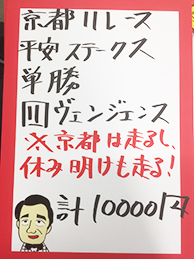 京都11レース
平安ステークス
単勝
11ヴェンジェンス
※京都は走るし、
休み明けも走る!
計10000円